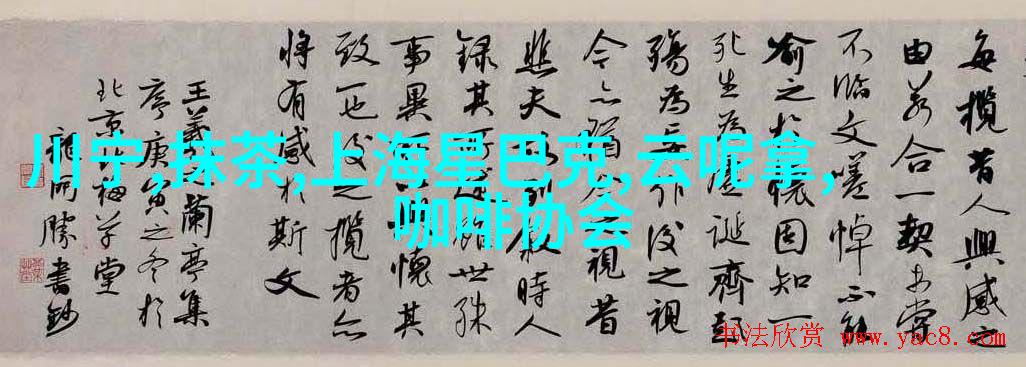 每攬昔人興感之
由若合一契未嘗
不臨文嗟悼不能
喻之於懷固知一
死生為虛誕齊彭
殤為妄作後之視
今亦猶今之視昔
悲夫故列敘時人
錄其所述雖世殊
事異所以興懷其
致一也後之攬者亦
將有感於斯文
王羲之蘭亭集
序庚寅之冬於
北京梅草堂
同勝書鈔
川宁,抹茶,上海星巴克,云呢拿,
咖啡协会
书法欣赏 www.yac8.com